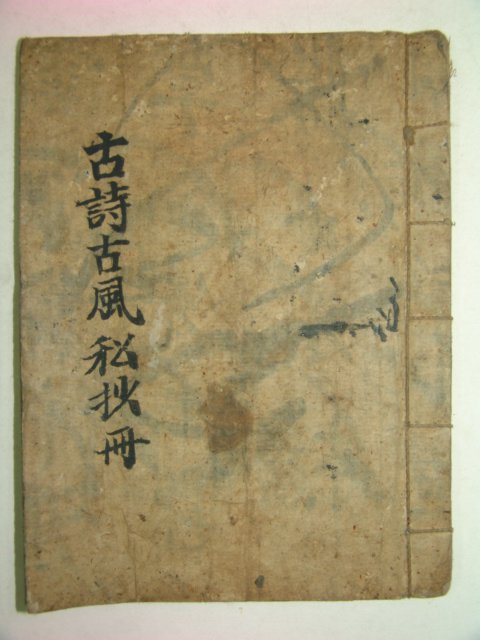 古詩古風私抄冊